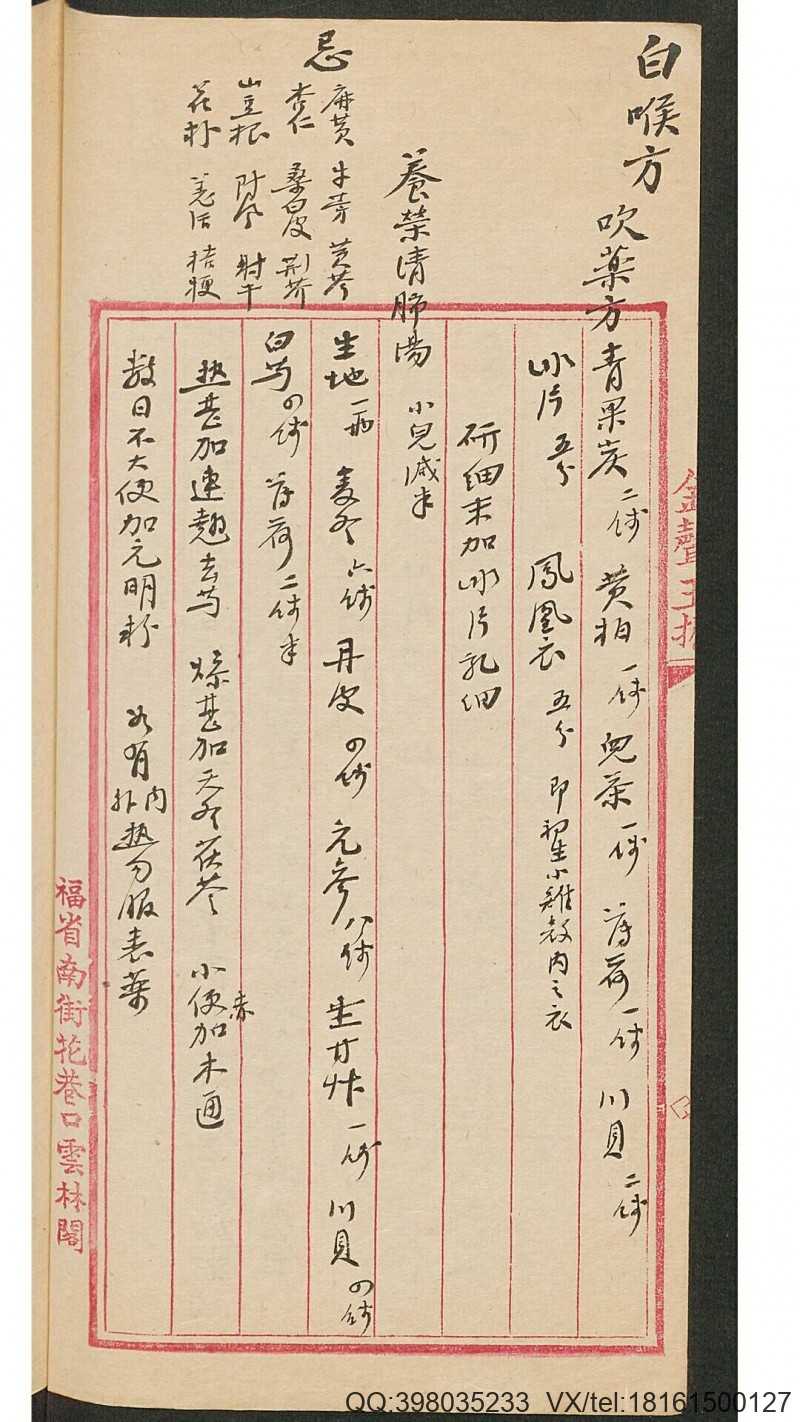 白喉方
吹藥方 青果炭二錢 黃柏一錢 兒茶一錢 薄荷一錢 川貝二錢
冰片五分 鳳凰衣五分 即初生小雞殼內之衣
研細末加冰片乳細
養榮清肺湯 小兒減半
生地一兩 麦冬六錢 丹皮四錢 元參八錢 生甘艸一錢 川貝四錢
白芍四錢 薄荷二錢半
热甚加連翹去芍 燥甚加天冬茯苓 小便赤加木通
数日不大便加元明粉 如有內外热勿服表藥
忌
麻黃 牛蒡 黃芩
杏仁 桑白皮 荊芥
山豆根 防風 射干
花朴 羌活 桔梗
金聲玉振
福省南街花巷口雲林閣
QQ:398035233 VX/tel:18161500127